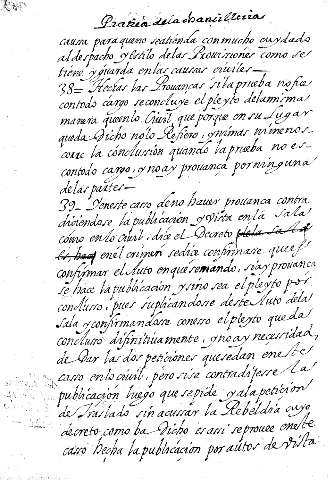 Practica de la Chancilleria
causa para que no se atienda con mucho cuydado
al despacho, y estilo de las Provisiones como se
tiene y guarda en las causas civiles
38= Hechas las Provanças si la prueba no fue
con todo cargo se concluye el pleyto de la misma
manera que en lo Civil, que porque en su lugar
queda Dicho no lo Refiero, y ni mas ni menos
corre la conclussion quando la prueba no es
con todo cargo, y no ay provança por ninguna
de las partes
39 Y en este casso de no haver provança contra
diciendose la publicacion, y Vista en la Sala
como en lo Civil, dice el Decreto
en el crimen se dira confirmase que es
confirmar el Auto en que se mando, si ay provança
se hace la publicacion y sino sea el pleyto por
conclusso, pues suplicandose deste Auto dela
Sala y confirmandose con esso el pleyto queda
concluso difinitivamente, y no ay necessidad
de Dar las dos peticiones que se dan en este
casso en lo civil, pero si se contradijesse la
publicacion luego que se pide, y a la peticion
de Traslado sin acussar la Rebeldia cuyo
decreto como ba Dicho es assi se provee en este
casso hecha la publicacion por autos de Vista